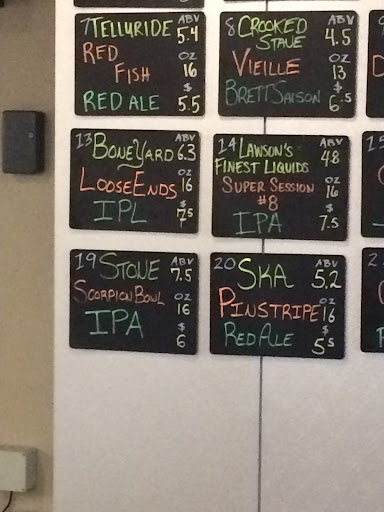 7 TELLURIDE ABV 5.4
RED OZ
FISH 16
$
RED ALE 5.5
8 CROOKED STAVE ABV 4.5
VIEILLE OZ 13
BRETT SAISON $ 6.5
13 BONEYARD ABV 6.3
LOOSE ENDS OZ 16
IPL $ 7.5
14 LAWSON'S ABV 4.8
FINEST LIQUIDS
SUPER SESSION OZ 16
#8 $
IPA 7.5
19 STONE ABV 7.5
SCORPION BOWL OZ 16
IPA $ 6
20 SKA ABV 5.2
PINSTRIPE OZ 16
RED ALE $ 5.5